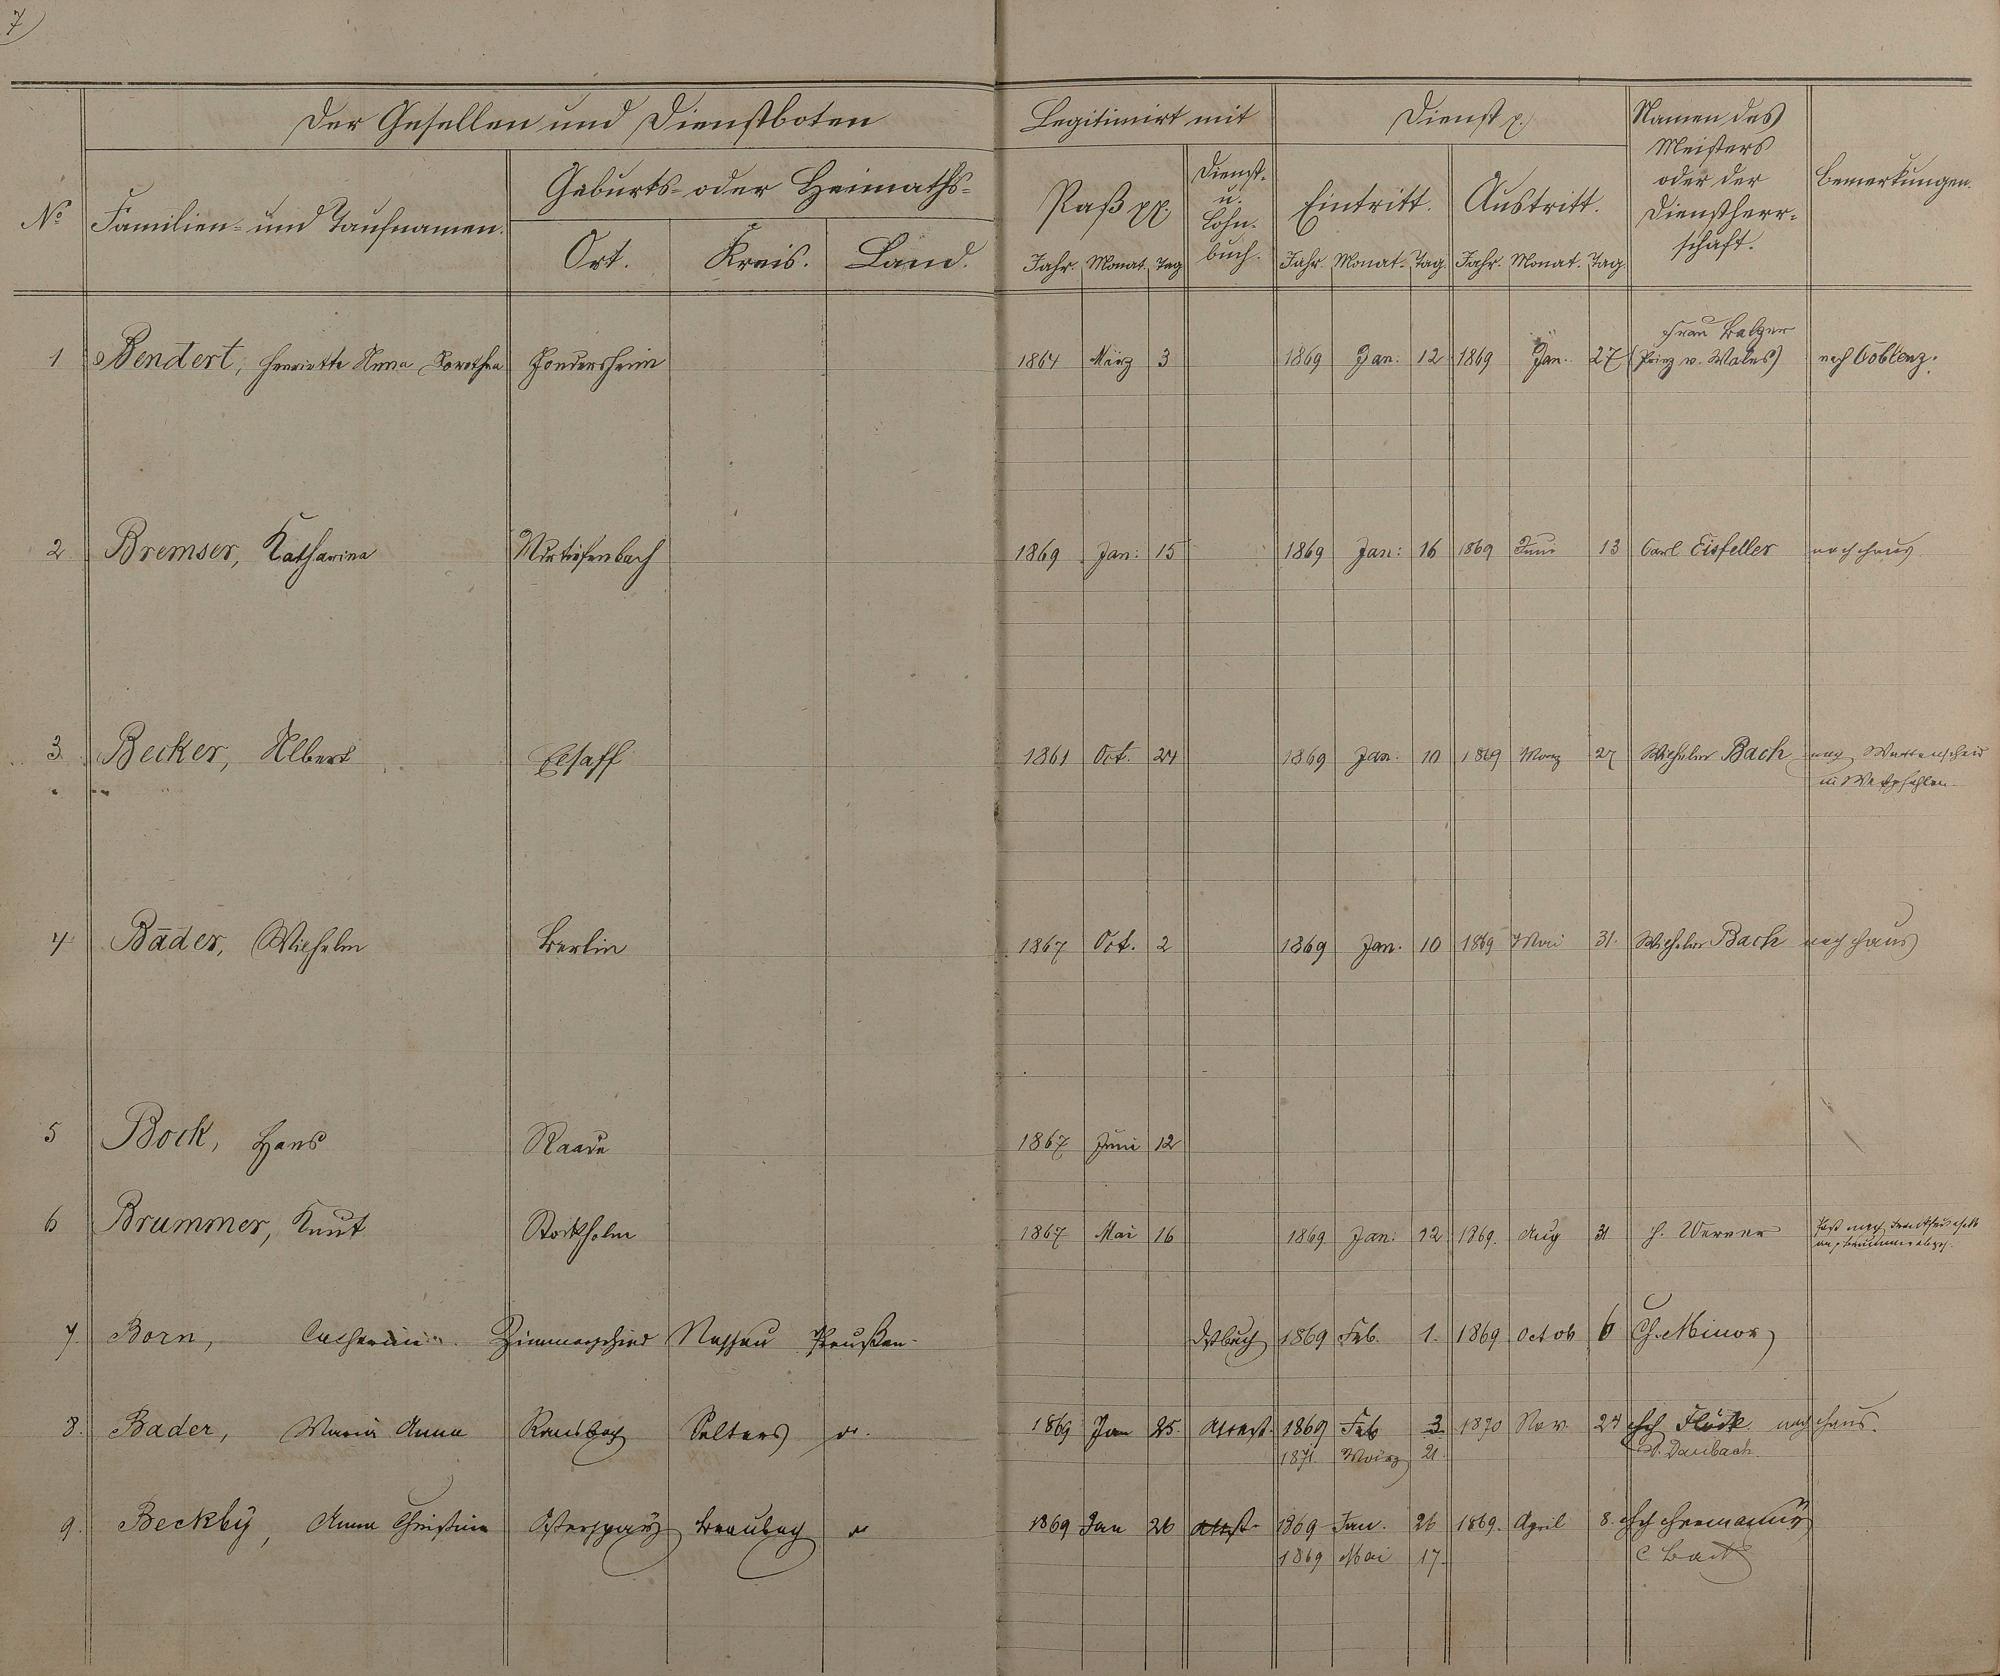 7
Der Gesellen und Dienstboten
Legitimirt mit
Dienst p.
Namen des
Meisters
oder der
Dienstherr-
schaft.
Bemerkungen.
No
Familien- und Taufnamen.
Geburts- oder Heimaths-
Ort. Kreis. Land.
Paß pp.
Dienst-
u.
Lohn-
buch.
Eintritt. Austritt.
Jahr. Monat. Tag Jahr. Monat. Tag. Jahr. Monat. Tag.
Frau Balzer
1 Bendert, Henriette Anna Dorothea 1864 März 3 1869 Jan. 12 1869 Jan. 27 (Prinz v. Wales) nach Coblenz.
2 Bremser, Katharina 1869 Jan: 15 1869 Jan: 16 1869 Juni 13 Carl Eisfeller nach Haus
3 Becker, Albert Elsaff 1861 Oct. 24 1869 Jan. 10 1869 März 27 Wilhelm Bach nach Wattenscheid
in Westphalen
4 Bader, Wilhelm Berlin 1867 Oct. 2 1869 Jan. 10 1869 Mai 31. Wilhelm Bach nach Haus
5 Bock, Hans 1867 Juni 12
6 Brummer, Knut Stockholm 1867 Mai 16 1869 Jan: 12 1869. Aug 31 H. Werner
7 Born, Catharina. Zimmerschied Nassau Preußen. Dstbuch 1869 Feb. 1. 1869 Octob 6 Ch. Minor
8. Bader, Maria Anna Ransbach Selters do. 1869 Jan 25. Attest. 1869 Feb 3 1870 Nov. 24 Flöck nach Haus.
1871. März 21. Daubach
9. Beckby, Anna Christina Osterspay Braubach do 1869 Jan 26 Attest. 1869 Jan. 26 1869. April 8.
1869 Mai 17. C. Bach